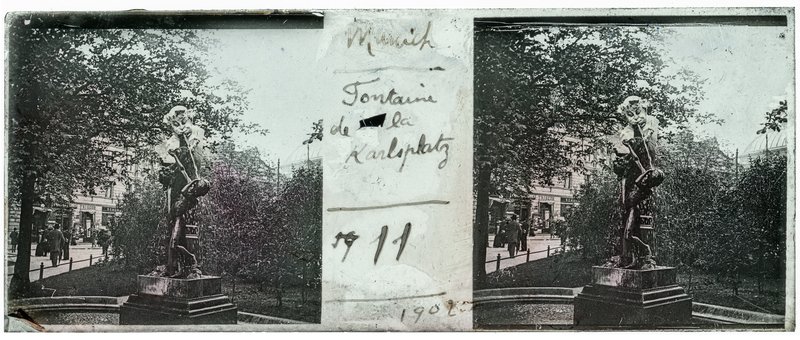 Munich
Fontaine
de la
Karlsplatz
1911
1902